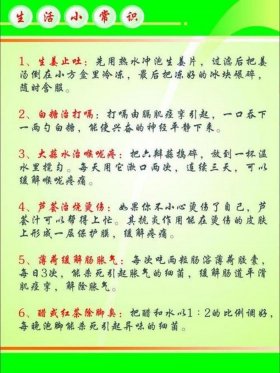 生活小常识
1、生姜止吐：先用热水冲泡生姜片，过滤后把姜
汤倒在小方盒里冷冻，最后把冻好的冰块碾碎，
随时含服。
2、白糖治打嗝：打嗝由膈肌痉挛引起，一口吞下
一两勺白糖，能使兴奋的神经平静下来。
3、大蒜水治喉咙疼：把六瓣蒜捣碎，放到一杯温
水里搅匀。每天用它漱口两次，连续三天，可以
缓解喉咙疼痛。
4、芦荟治烧烫伤：如果你不小心烫伤了自己，芦
荟汁可以帮得上忙。其抗炎作用能在烫伤的皮肤
上形成一层保护膜，缓解疼痛。
5、薄荷缓解肠胀气：每次吃两粒肠溶薄荷胶囊，
每日3次，能杀死引起胀气的细菌，缓解肠道平滑
肌痉挛，解除胀气。
6、醋或红茶除脚臭：把醋和水以1：2的比例调好，
每晚泡脚能杀死引起异味的细菌。